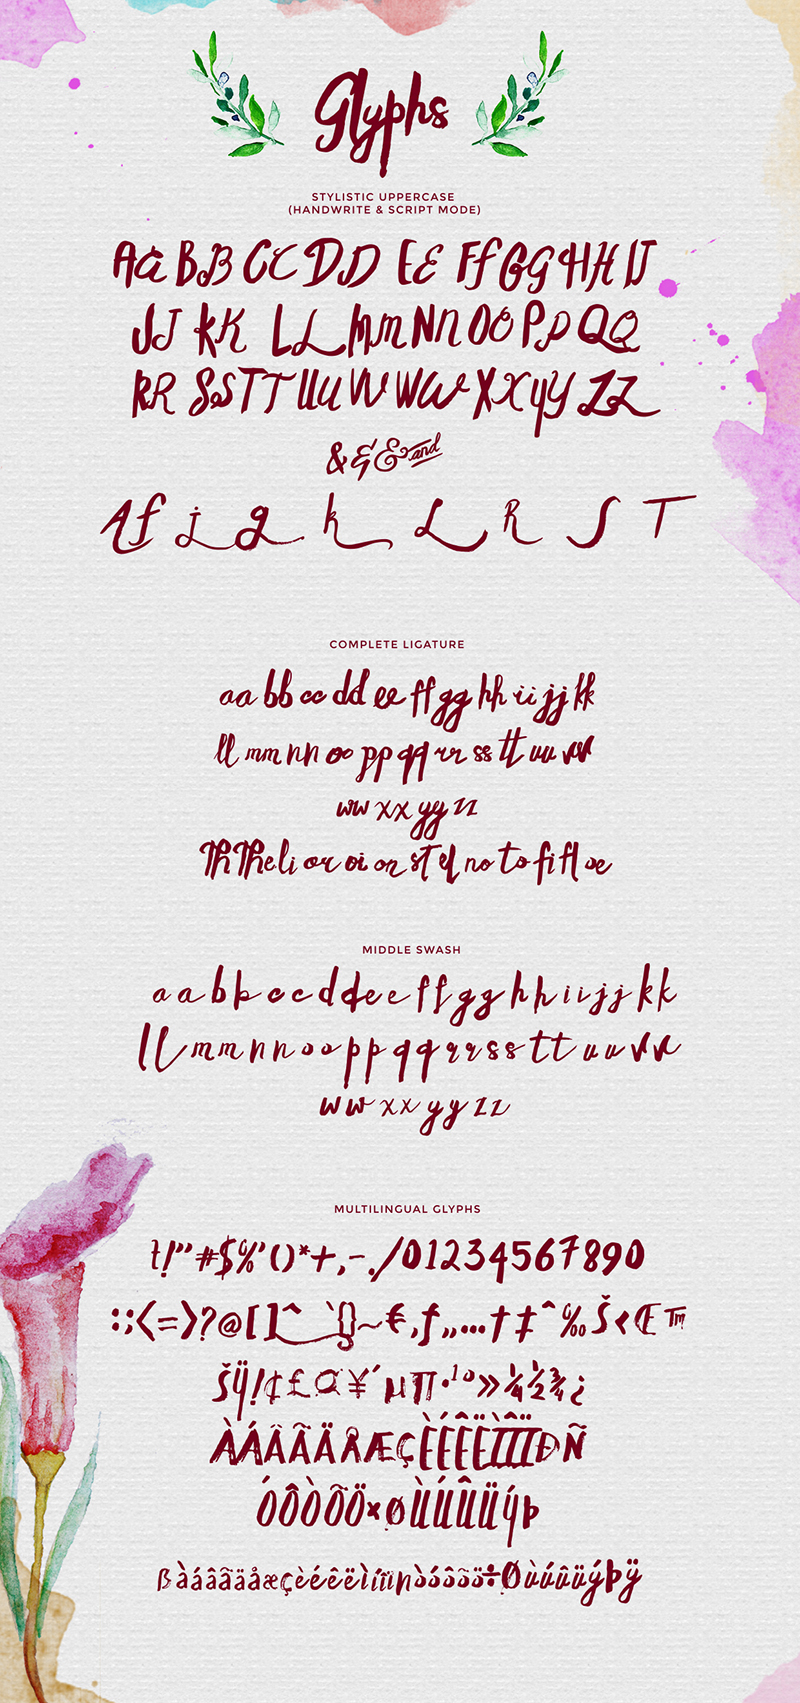 Glyphs
STYLISTIC UPPERCASE
(HANDWRITE & SCRIPT MODE)
AaBBCCDDEEFfGGHHIJ
JJKKLLMmNnOOPPQQ
RRSSTTUUVVWWXXYYZZ
&&& and
Af j g k L R S T
COMPLETE LIGATURE
aa bb cc dd ee ff gg hh ii jj kk
ll mm nn oo pp qq rr ss tt uu vv
ww xx yy zz
Th The li or oi on st el no to fi fl oe
MIDDLE SWASH
a a b b c c d d e e f f g g h h i i j j k k
l l m m n n o o p p q q r r s s t t u u v v
w w x x y y z z
MULTILINGUAL GLYPHS
!"#$%'()*+,-./01234567890
:;<=>?@[]^`{}~€‚ƒ„…†‡ˆ‰Š‹Œ™
šÿ¡¢£¤¥´µ¶·¹º»¼½¾¿
ÀÁÂÃÄÅÆÇÈÉÊËÌÎÏÐÑ
ÓÔÒÕÖ×øÙÚÛÜýÞ
ßàáâãäåæçèéêëìíîïñòóôõö÷Øùúûüýþÿ